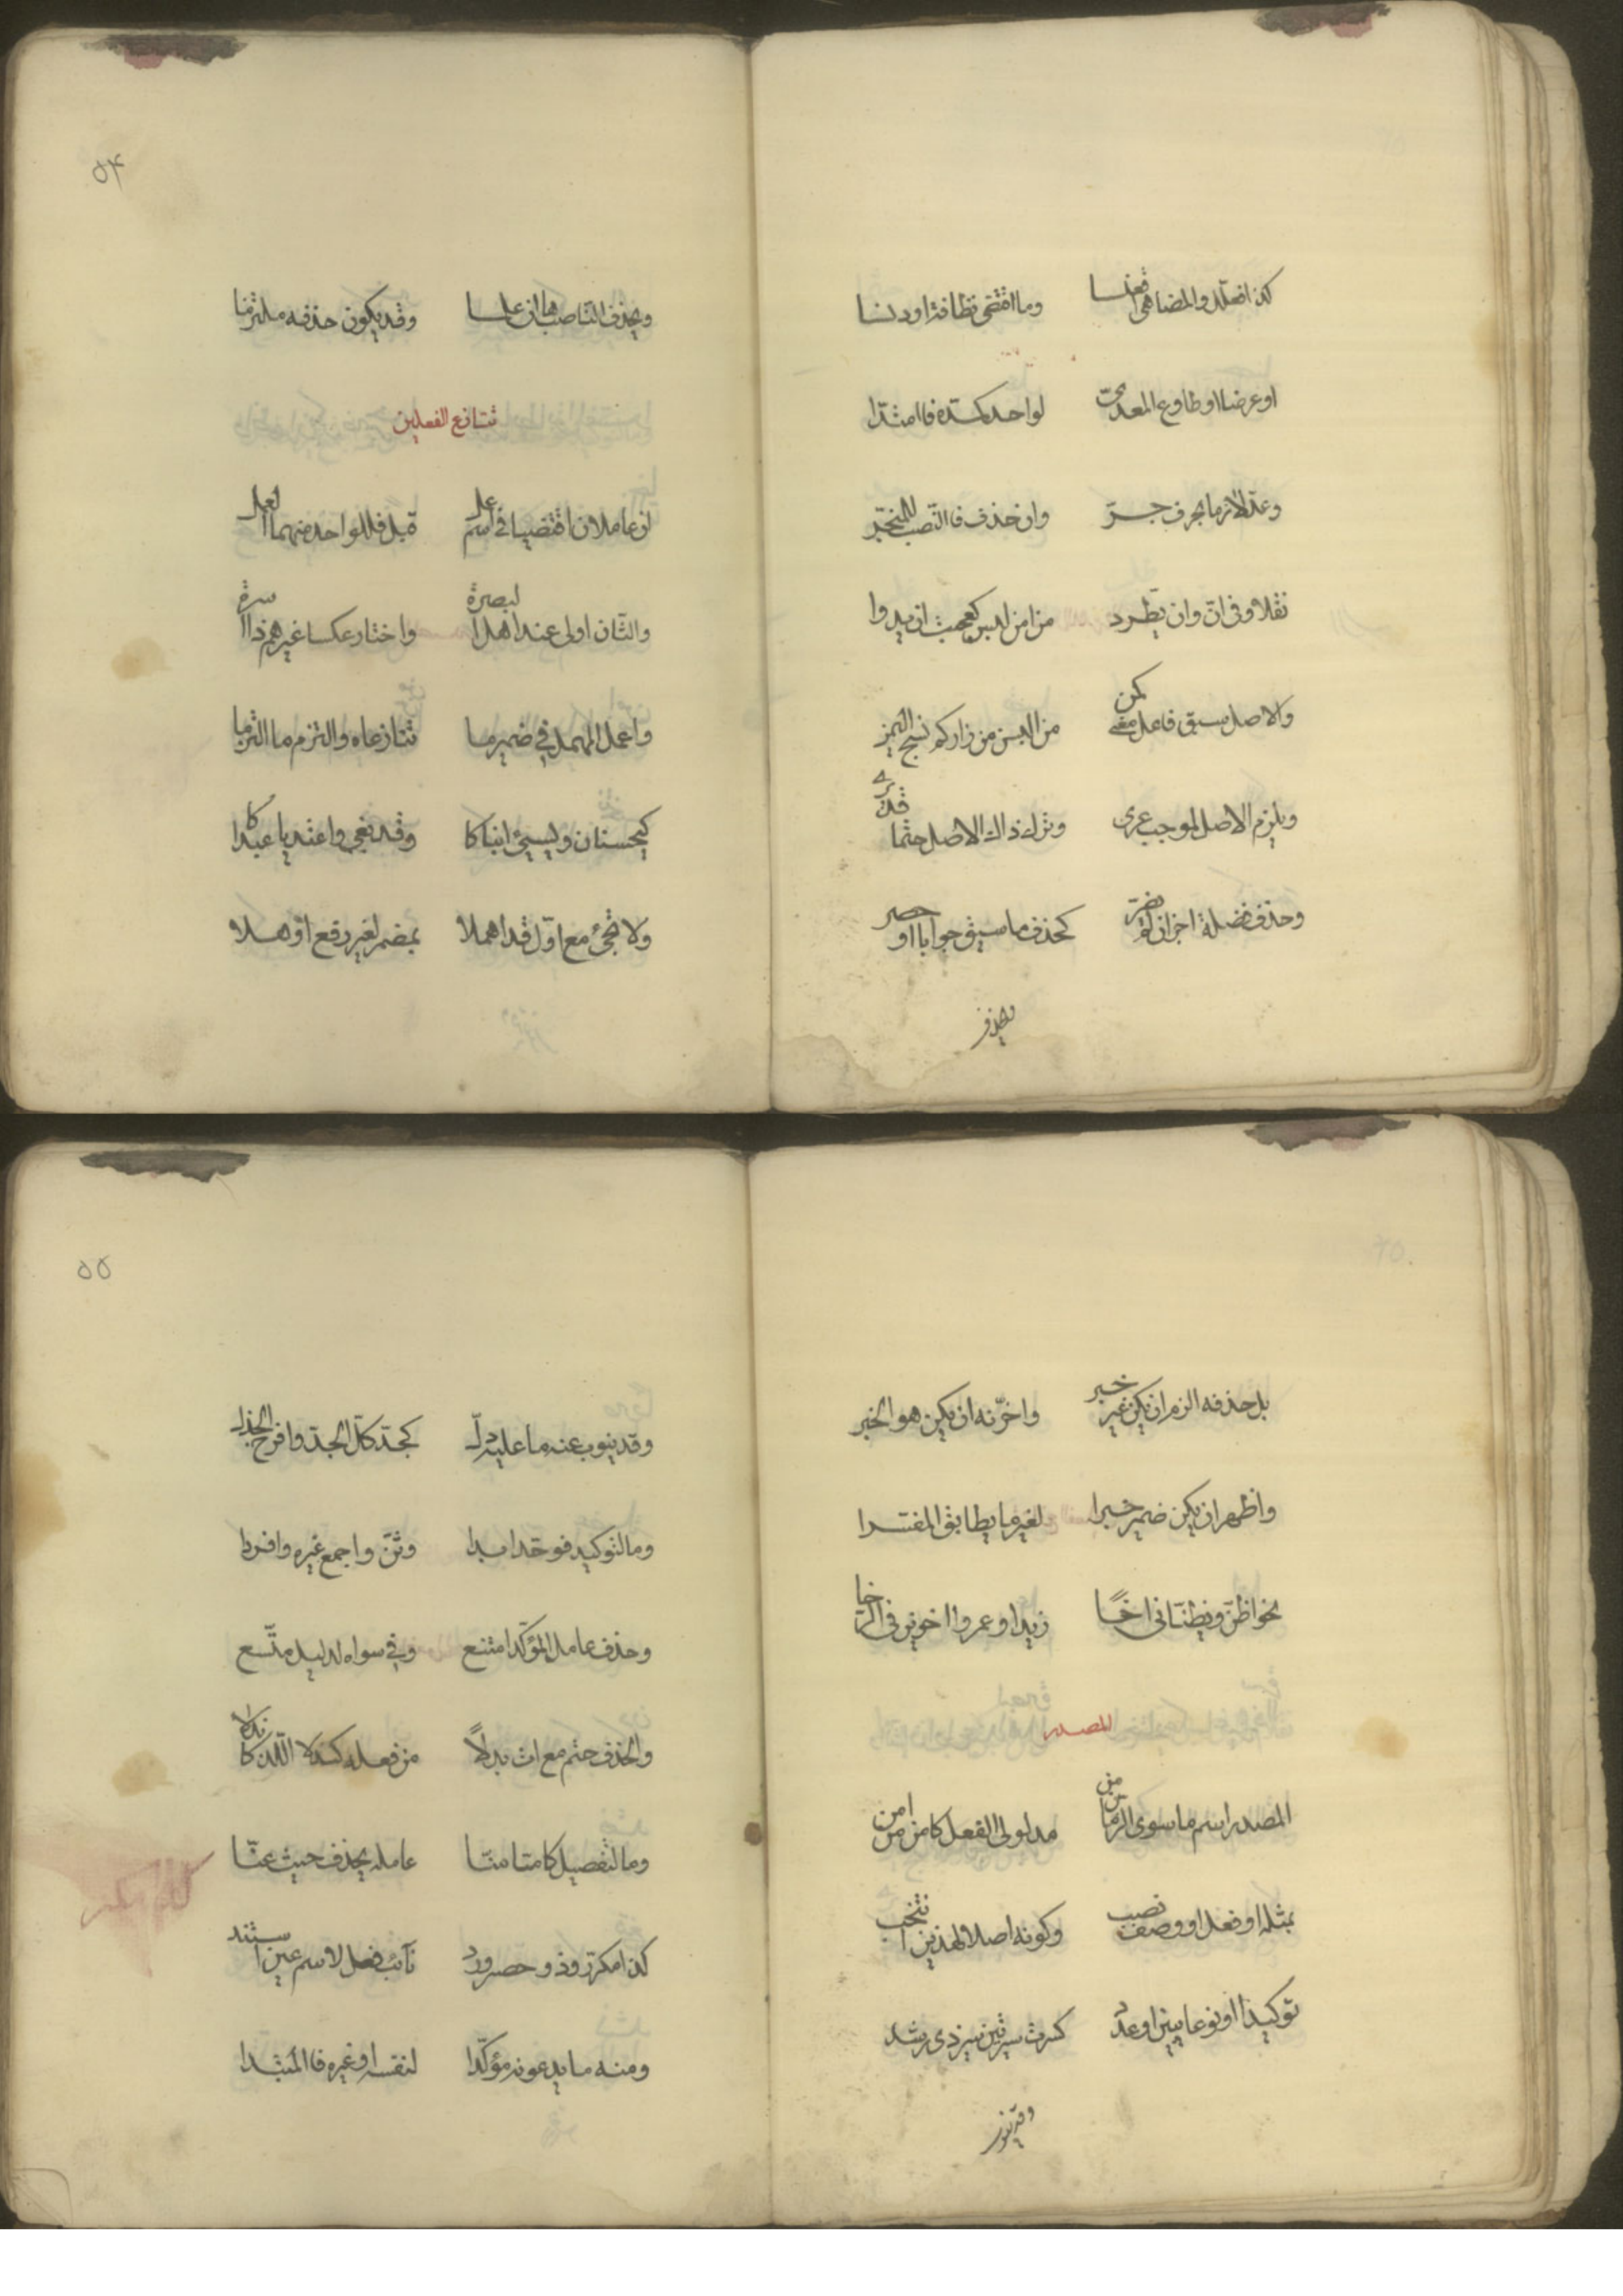 كذا افعلل والمضاهي اقعنسسا وما اقتضى نظافة او دنسا
او عرضا او طاوع المعدى لواحد كمده فامتدا
وعد لازما بحرف جر وان حذف فالنصب للمنجر
نقلا وفى ان وان يطرد مع امن لبس كعجبت ان يدوا
والاصل سبق فاعل معنى كمن من البسن من زاركم نسج اليمن
ويلزم الاصل لموجب عرى وترك ذاك الاصل حتما قد يرى
وحذف فضلة اجز ان لم يضر كحذف ما سيق جوابا او حصر
ويحذف
۵۴
ويحذف الناصبها ان علما وقد يكون حذفه ملتزما
تنازع الفعلين
ان عاملان اقتضيا فى اسم عمل قبل فللواحد منهما العمل
والثان اولى عند اهل البصرة واختار عكسا غيرهم ذا اسرة
واعمل المهمل في ضمير ما تنازعاه والتزم ما التزما
كيحسنان ويسيئ ابناكا وقد بغى واعتديا عبداكا
ولا تجئ مع اول قد اهملا بمضمر لغير رفع اوهلا
بل حذفه الزم ان يكن غير خبر واخرنه ان يكن هو الخبر
واظهر ان يكن ضمير خبرا لغير ما يطابق المفسرا
نحو اظن ويظنانى اخا زيدا وعمروا اخوين فى الرخا
المصدر
المصدر اسم ما سوى الزمان من مدلولى الفعل كامن من امن
بمثله او فعل او وصف نصب وكونه اصلا لهذين انتخب
توكيدا او نوعا يبين او عدد كسرت سيرتين سير ذى رشد
وقد ينوب
۵۵
وقد ينوب عنه ما عليه دل كجد كل الجد وافرح الجذل
وما لتوكيد فوحد ابدا وثن واجمع غيره وافردا
وحذف عامل المؤكد امتنع وفي سواه لدليل متسع
والحذف حتم مع ات بدلا من فعله كندلا اللذ كاندلا
وما لتفصيل كاما منا عامله يحذف حيث عنا
كذا مكرر وذو حصر ورد نائب فعل لاسم عين استند
ومنه ما يدعونه مؤكدا لنفسه او غيره فالمبتدا